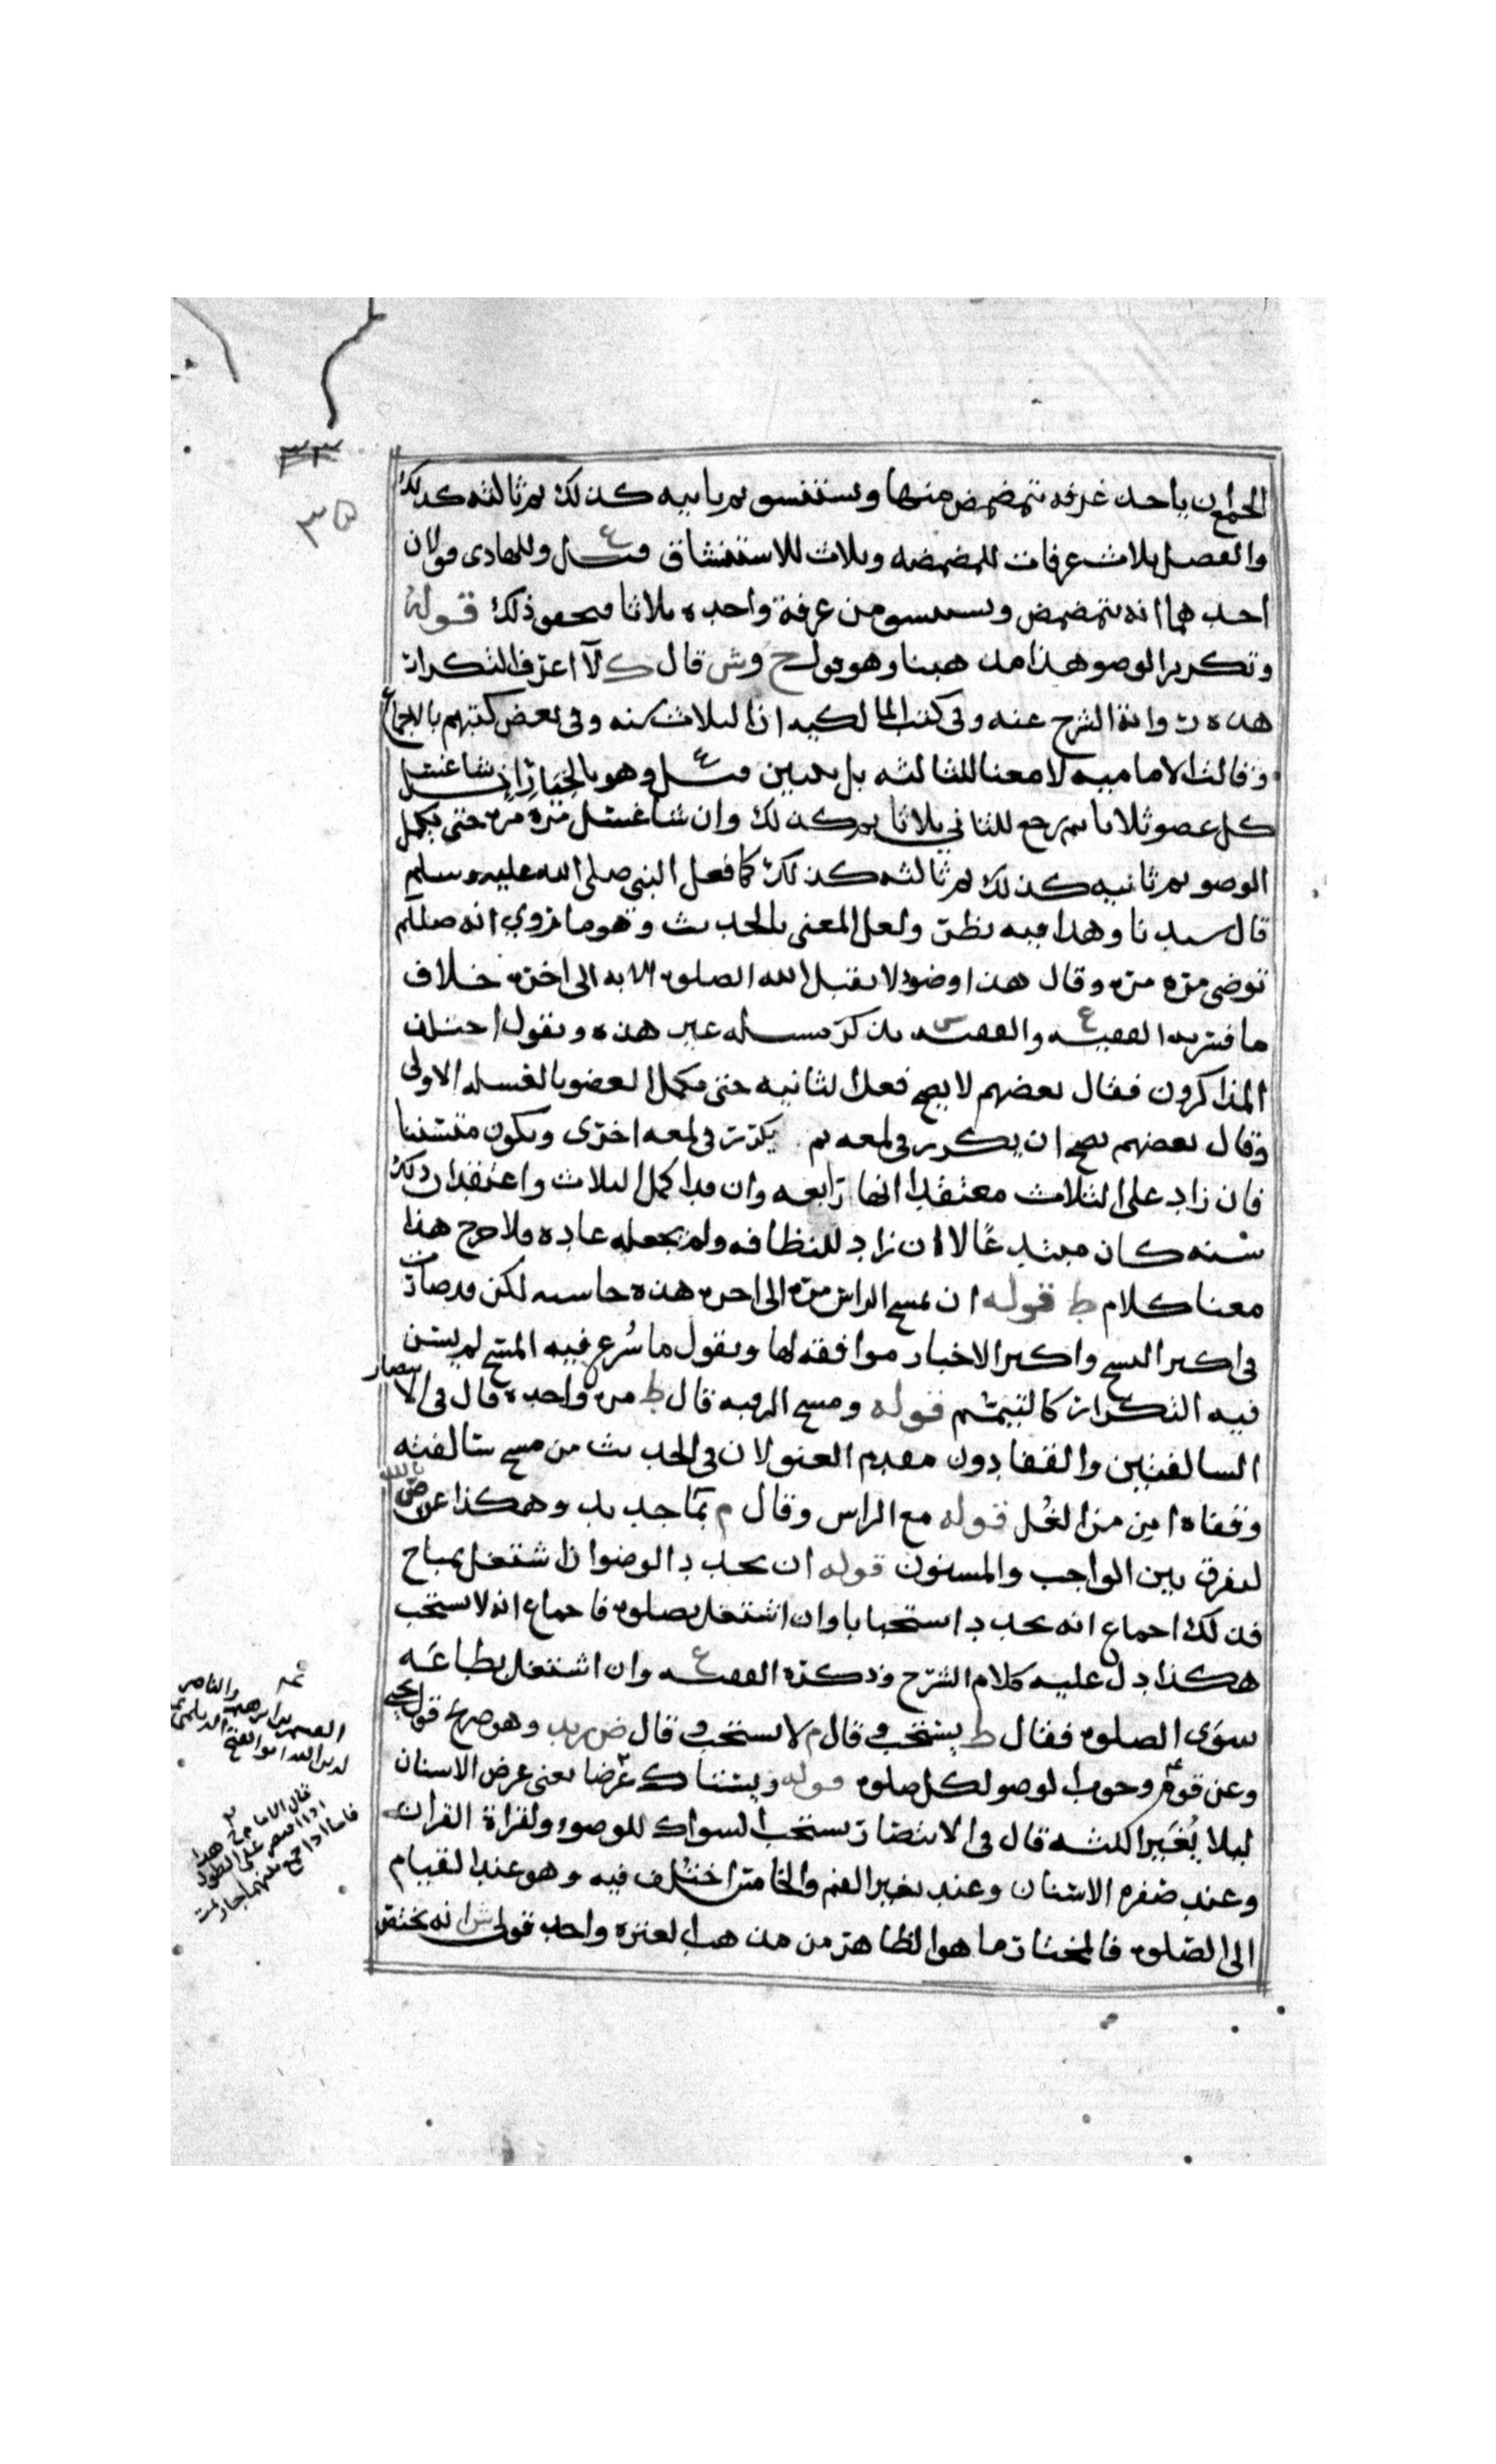 الجمع ان ياخذ غرفه يتمضمض منها ويستنشق ثم ثانيه كذلك ثم ثالثه كذلك
والفصل ثلاث غرفات للمضمضه وثلاث للاستنشاق وللهادي قولان
احدهما انه يتمضمض ويستنشق من غرفة واحده ثلاثا ذلك قوله
وتكرير الوضو هذا مذهبنا وهو قول ح وش قال ك لا اعرف التكرار
هذه رواية الشرح عنه وفي كتب المالكيه ان الثلاث سنه وفي بعض كتبهم بالاجماع
وقالت الاماميه لا معنا للثالثه بل وهو بالخيار ان شا غسل
كل عضو ثلاثا ثم رجع للثاني ثلاثا ثم كذلك وان شا غسل مره مره حتى يكمل
الوضو ثم ثانيه كذلك ثم ثالثه كذلك كما فعل النبي صلى الله عليه وسلم
قال سيدنا وهذا فيه نظر ولعل المعنى بالحديث وهو ما روي انه صللم
توضى مره مره وقال هذا وضو لا يقبل الله الصلوه الا به الى اخره خلاف
ما فسر به الفقيه ع والفقيه س يذكر مسله غير هذه ويقول اختلف
المذاكرون فقال بعضهم لا يصح فعل الثانيه حتى يكمل العضو بالغسله الاولى
وقال بعضهم يصح ان يكرر في لمعه ثم يكرر في لمعه اخرى ويكون متسننا
فان زاد على الثلاث معتقدا انها رابعه وان قد اكمل الثلاث واعتقد ان ذلك
سنه كان مبتدعا الا ان زاد للنظافه ولم يجعله عاده فلا حرج هذا
معنا كلام ط قوله ان يمسح الراس مره الى اخره هذه حاشيه لكن قد صارت
في اكثر النسخ واكثر الاخبار موافقه لها ونقول ما شرع فيه المسح لم يسن
فيه التكرار كالتيمم قوله ومسح الرقبه قال ط مره واحده قال في الانتصار
السالفتين والقفا دون مقدم العنق لان في الحديث من مسح سالفته
وقفاه امن من الغل قوله مع الراس وقال م بما جديد وهكذا عن ض
ليفرق بين الواجب والمسنون قوله ان يجدد الوضو اذا اشتغل بمباح
فذلك اجماع انه يجدد استحبابا وان اشتغل بصلوه فاجماع انه لا يستحب
هكذا دل عليه كلام الشرح وذكره الفقيه ع وان اشتغل بطاعه
سوى الصلوه فقال ط يستحب وقال م لا يستحب وقال ض زيد وهو صريح قول يحيى
وعن قوم وجوب الوضو لكل صلوه قوله ويستاك عرضا يعني عرض الاسنان
ليلا يغير اللثه قال في الانتصار يستحب السواك للوضوء ولقراة القران
وعند صفره الاسنان وعند تغير الفم والخامس اختلف فيه وهو عند القيام
الى الصلوه فالمختار ما هو الظاهر من مذهب العتره واحد قولي ش انه يختص
٣٥
والناصر
قال الامام ح هذا